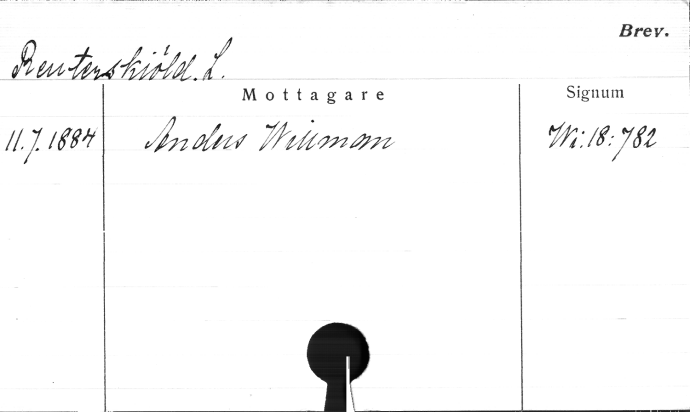 Brev.
Reuterskiöld. L.
Mottagare Signum
11.7.1884 Anders Willman Wi:18:782